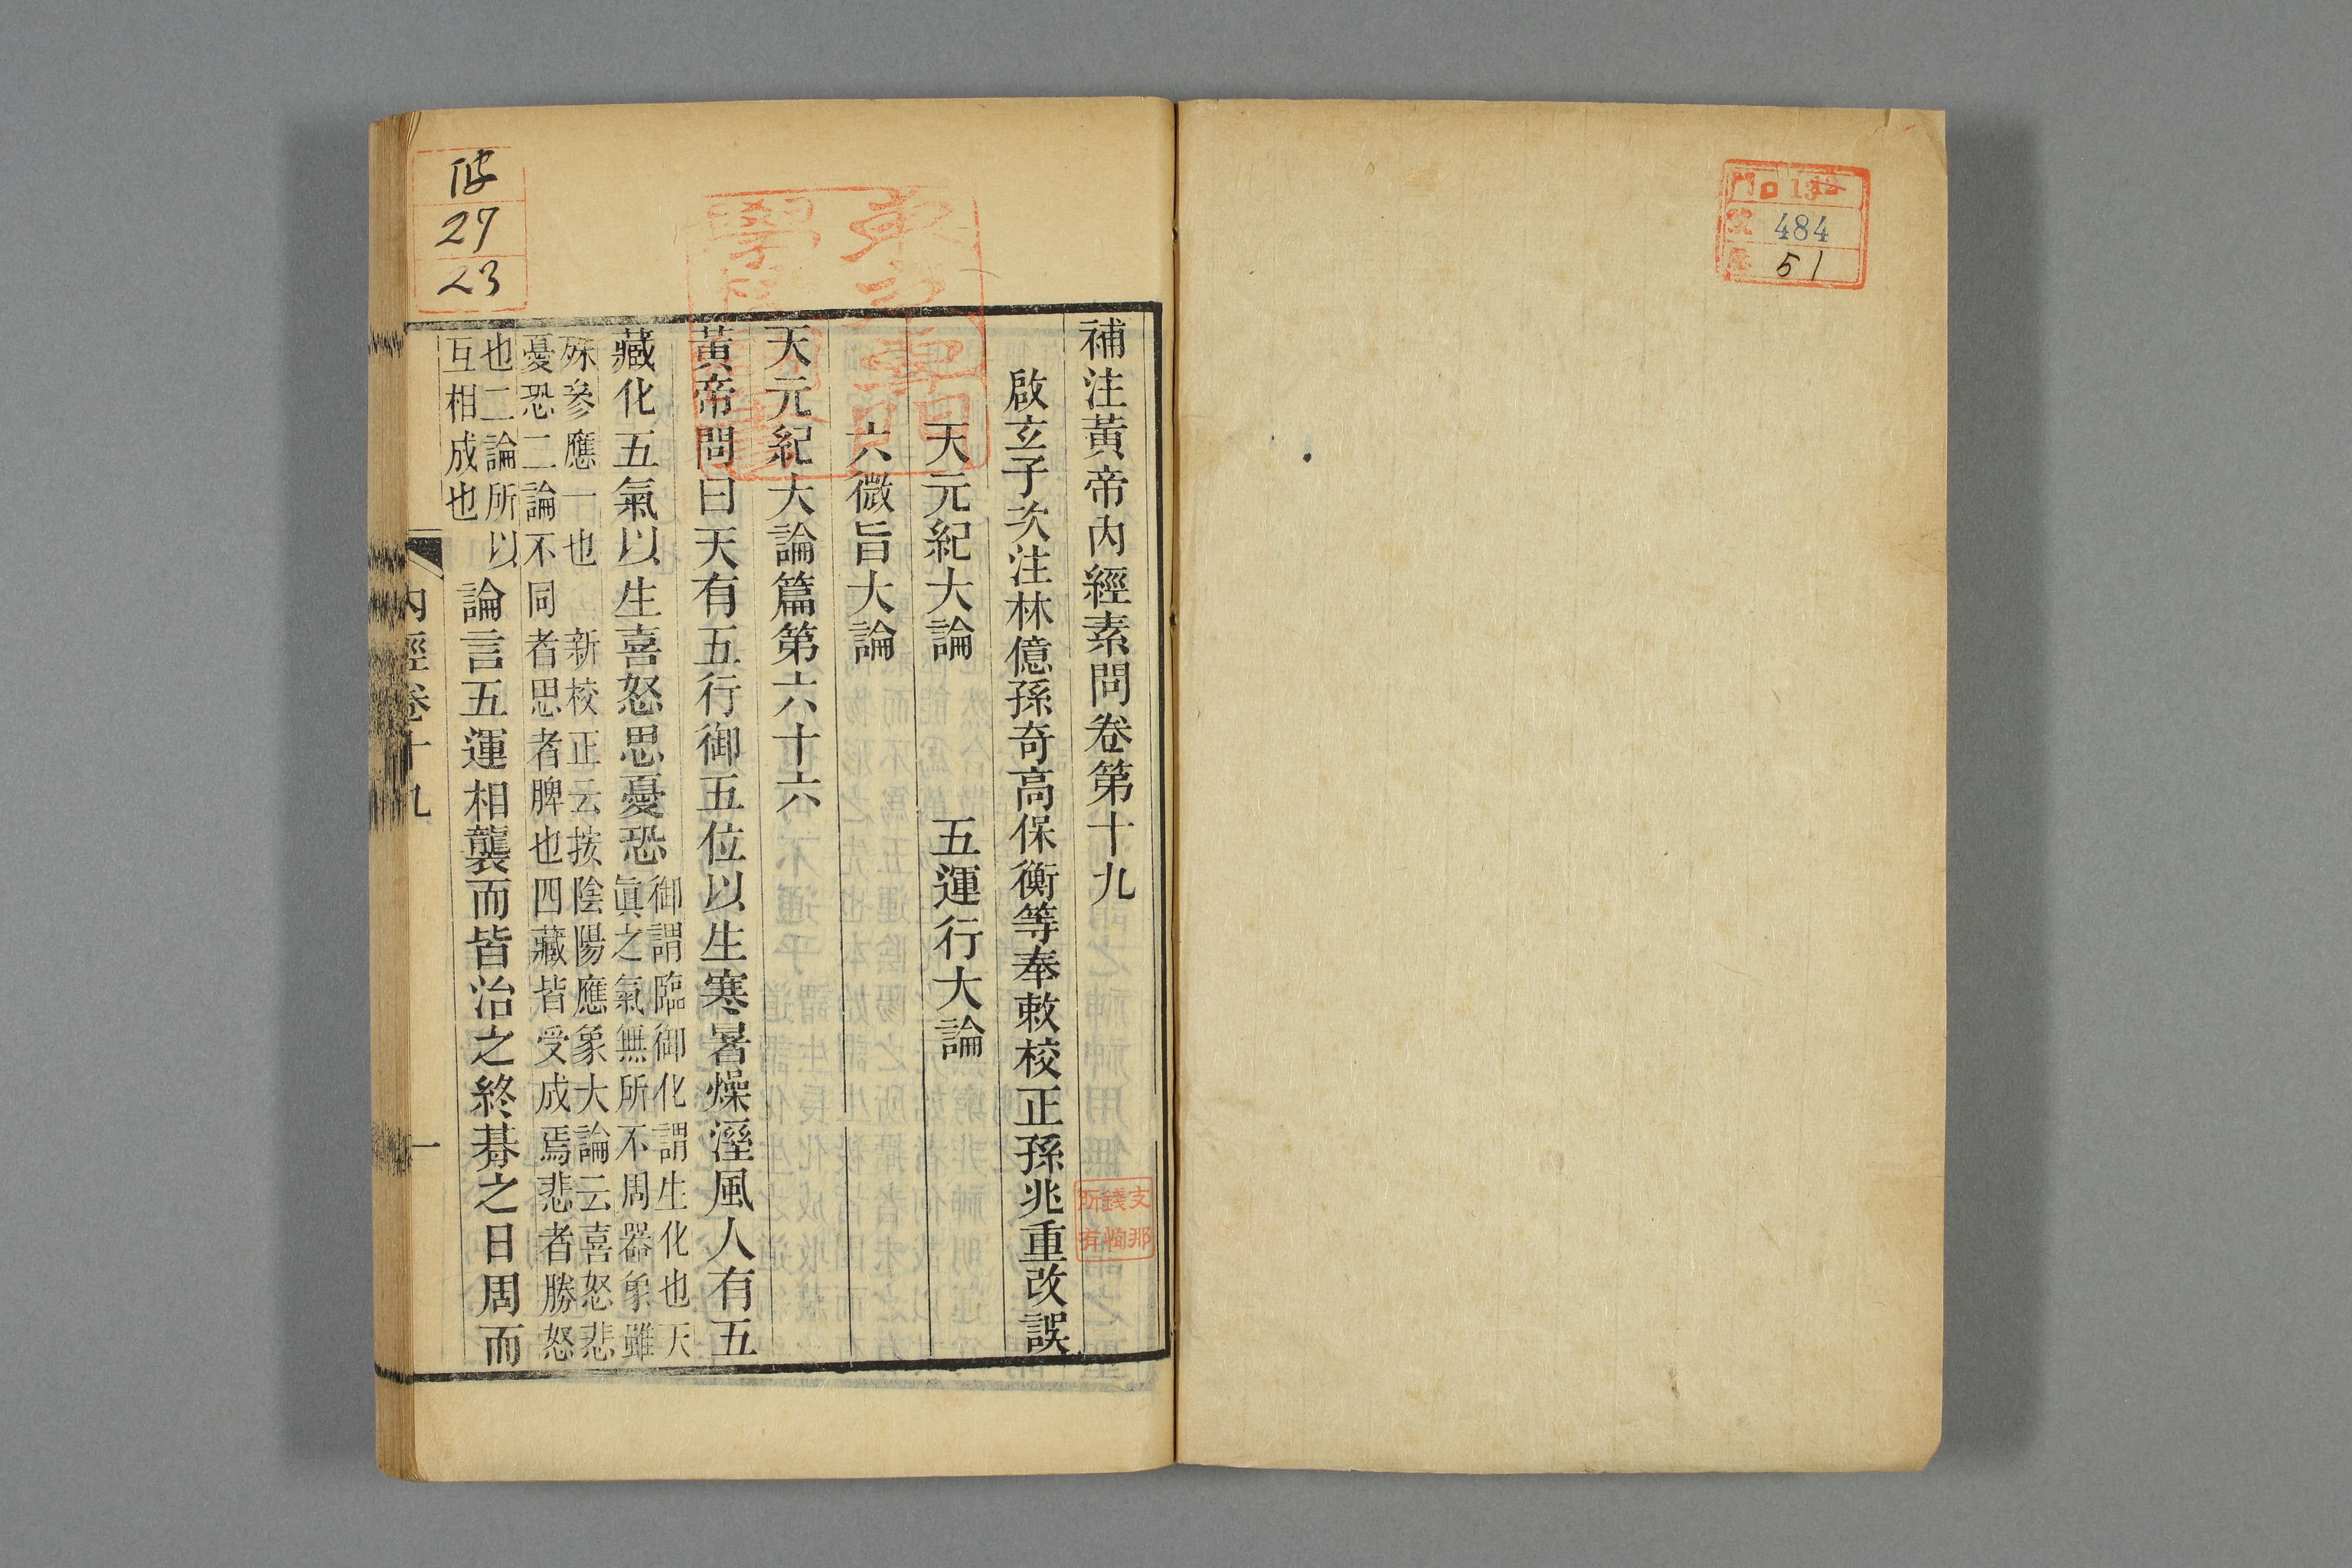 門 ロ 13
號 484
卷 51
補注黃帝內經素問卷第十九
啟玄子次注林億孫奇高保衡等奉敕校正孫兆重改誤
天元紀大論 五運行大論
六微旨大論
天元紀大論篇第六十六
黃帝問曰天有五行御五位以生寒暑燥溼風人有五
藏化五氣以生喜怒思憂恐御謂臨御化謂生化也天
眞之氣無所不周器象雖
殊參應一也 新校正云按陰陽應象大論云喜怒悲
憂恐二論不同者思者脾也四藏皆受成焉悲者勝怒
也二論所以
互相成也
論言五運相襲而皆治之終朞之日周而
內經卷十九
一
27
23
支那
錢恂
所有